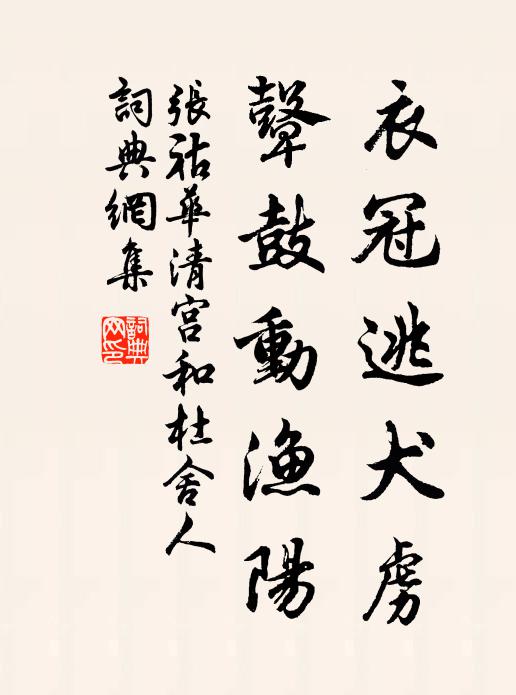 衣冠逃犬虜
鼙鼓動漁陽
張祜華清宮和杜舍人
詞典網集
詞典網印